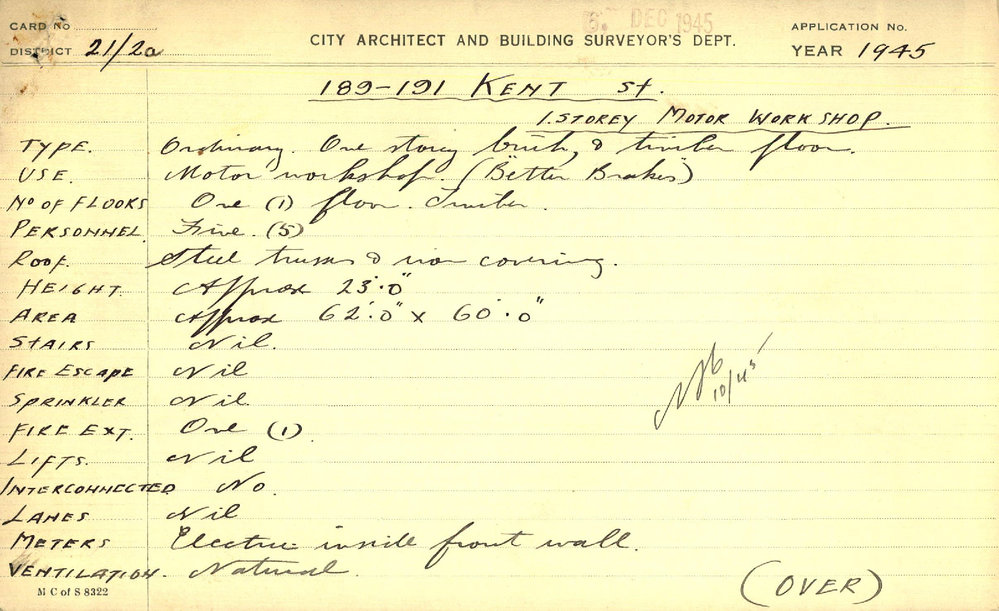 CARD No
DISTRICT 21/2a
CITY ARCHITECT AND BUILDING SURVEYOR'S DEPT.
6. DEC 1945
APPLICATION No.
YEAR 1945
189-191 KENT St.
1.STOREY MOTOR WORKSHOP.
TYPE. Ordinary. One storey brick, & timber floor.
USE. Motor workshop. ("Better Brakes")
No OF FLOORS One (1) floor. Timber.
PERSONNEL. Five. (5)
ROOF. Steel trusses & iron covering.
HEIGHT. Approx 23'.0"
AREA Approx 62'.0" x 60'.0"
STAIRS Nil.
FIRE ESCAPE Nil
SPRINKLER Nil.
FIRE EXT. One (1).
LIFTS. Nil
INTERCONNECTED No.
LANES Nil
METERS Electric inside front wall.
VENTILATION. Natural.
10/45
M C of S 8322
(OVER)